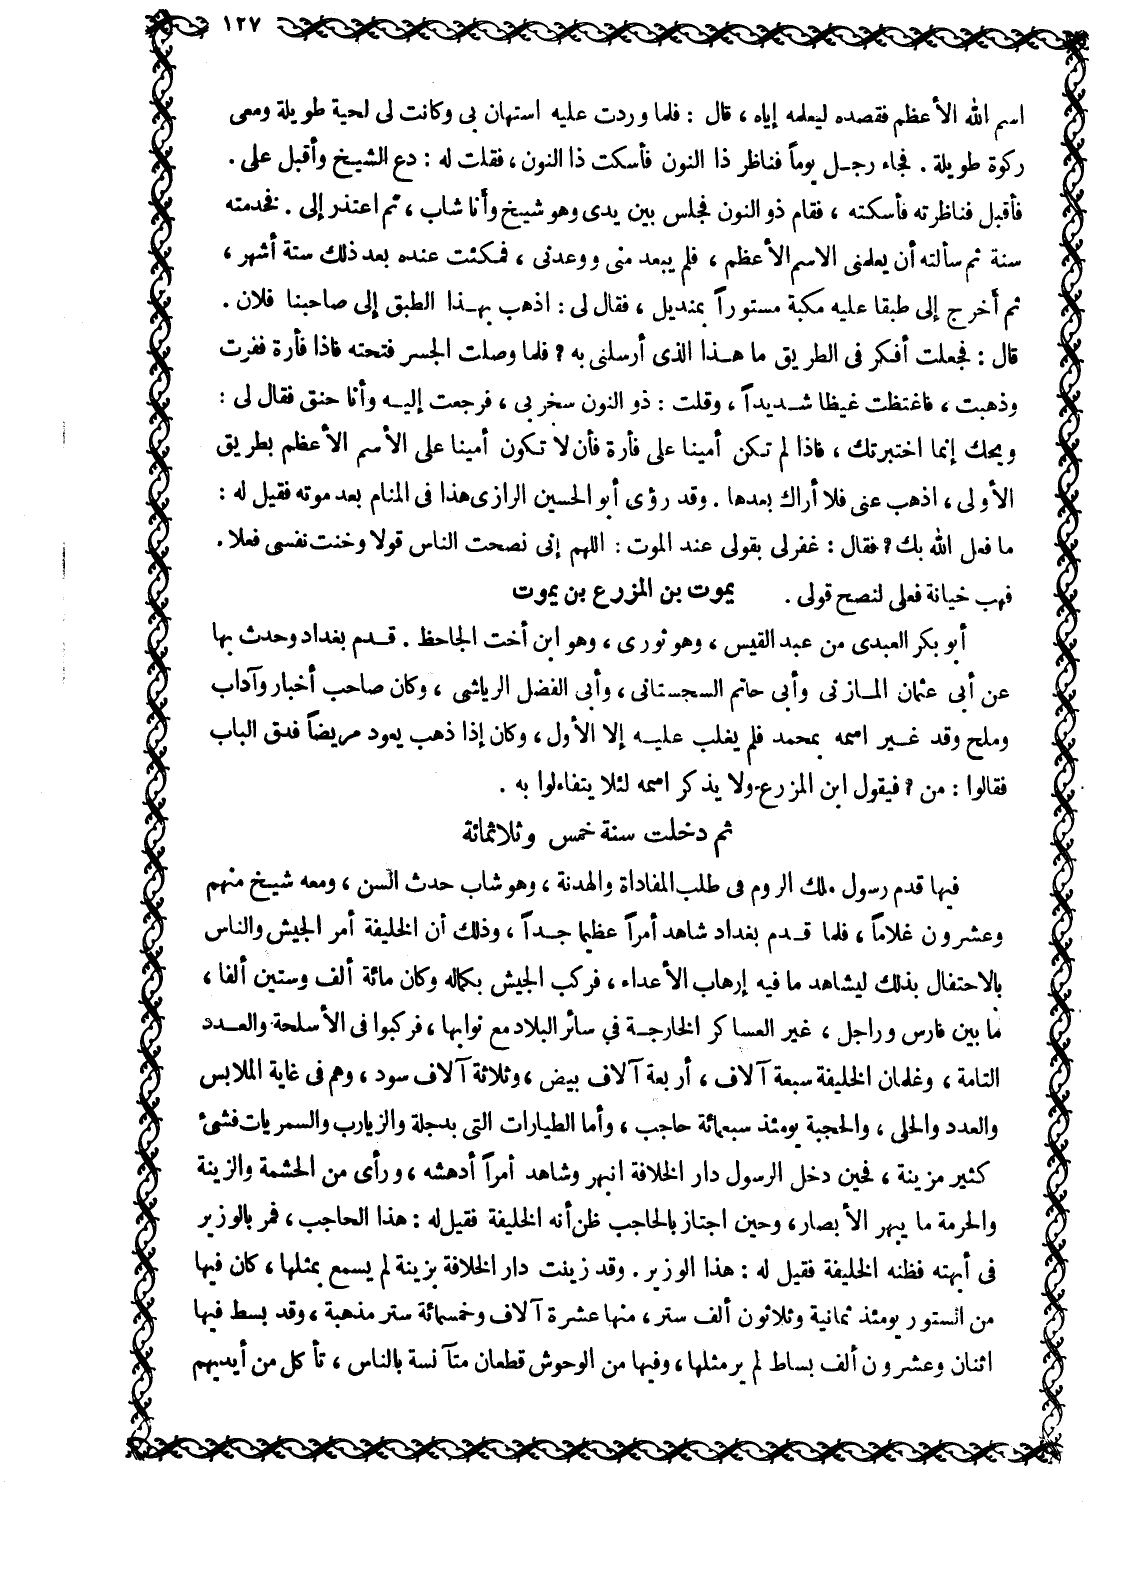 ١٢٧
اسم الله الأعظم فقصده ليعلمه إياه ، قال : فلما وردت عليه استهان بى وكانت لى لحية طويلة ومعى
ركوة طويلة . فجاء رجل يوماً فناظر ذا النون فأسكت ذا النون ، فقلت له : دع الشيخ وأقبل على .
فأقبل فناظرته فأسكته ، فقام ذو النون فجلس بين يدى وهو شيخ وأنا شاب ، ثم اعتذر إلى . فخدمته
سنة ثم سألته أن يعلمنى الاسم الأعظم ، فلم يبعد منى ووعدنى ، فمكثت عنده بعد ذلك ستة أشهر ،
ثم أخرج إلى طبقا عليه مكبة مستوراً بمنديل ، فقال لى : اذهب بهذا الطبق إلى صاحبنا فلان .
قال : فجعلت أفكر فى الطريق ما هذا الذى أرسلنى به ? فلما وصلت الجسر فتحته فاذا فأرة ففرت
وذهبت ، فاغتظت غيظا شديداً ، وقلت : ذو النون سخر بى ، فرجعت إليه وأنا حنق فقال لى :
ويحك إنما اختبرتك ، فاذا لم تكن أمينا على فأرة فأن لا تكون أمينا على الأسم الأعظم بطريق
الأولى ، اذهب عنى فلا أراك بعدها . وقد رؤى أبو الحسين الرازى هذا فى المنام بعد موته فقيل له :
ما فعل الله بك ? فقال : غفر لى بقولى عند الموت : اللهم إنى نصحت الناس قولا وخنت نفسى فعلا .
فهب خيانة فعلى لنصح قولى . يموت بن المزرع بن يموت
أبو بكر العبدى من عبد القيس ، وهو ثورى ، وهو ابن أخت الجاحظ . قدم بغداد وحدث بها
عن أبى عثمان المازنى وأبى حاتم السجستانى ، وأبى الفضل الرياشى ، وكان صاحب أخبار وآداب
وملح وقد غير اسمه بمحمد فلم يغلب عليه إلا الأول ، وكان إذا ذهب يعود مريضاً فدق الباب
فقالوا : من ? فيقول ابن المزرع ولا يذكر اسمه لئلا يتفاءلوا به .
ثم دخلت سنة خمس وثلاثمائة
فيها قدم رسول ملك الروم فى طلب المفاداة والهدنة ، وهو شاب حدث السن ، ومعه شيخ منهم
وعشرون غلاماً ، فلما قدم بغداد شاهد أمراً عظيما جداً ، وذلك أن الخليفة أمر الجيش والناس
بالاحتفال بذلك ليشاهد ما فيه إرهاب الأعداء ، فركب الجيش بكماله وكان مائة ألف وستين ألفا ،
ما بين فارس وراجل ، غير العساكر الخارجة في سائر البلاد مع نوابها ، فركبوا فى الأسلحة والعدد
التامة ، وغلمان الخليفة سبعة آلاف ، أربعة آلاف بيض ، وثلاثة آلاف سود ، وهم فى غاية الملابس
والعدد والحلى ، والحجبة يومئذ سبعمائة حاجب ، وأما الطيارات التى بدجلة والزيارب والسمريات فشئ
كثير مزينة ، فحين دخل الرسول دار الخلافة انبهر وشاهد أمراً أدهشه ، ورأى من الحشمة والزينة
والحرمة ما يبهر الأبصار ، وحين اجتاز بالحاجب ظن أنه الخليفة فقيل له : هذا الحاجب ، فمر بالوزير
فى أبهته فظنه الخليفة فقيل له : هذا الوزير . وقد زينت دار الخلافة بزينة لم يسمع بمثلها ، كان فيها
من الستور يومئذ ثمانية وثلاثون ألف ستر ، منها عشرة آلاف وخمسمائة ستر مذهبة ، وقد بسط فيها
اثنان وعشرون ألف بساط لم ير مثلها ، وفيها من الوحوش قطعان متآنسة بالناس ، تأكل من أيديهم